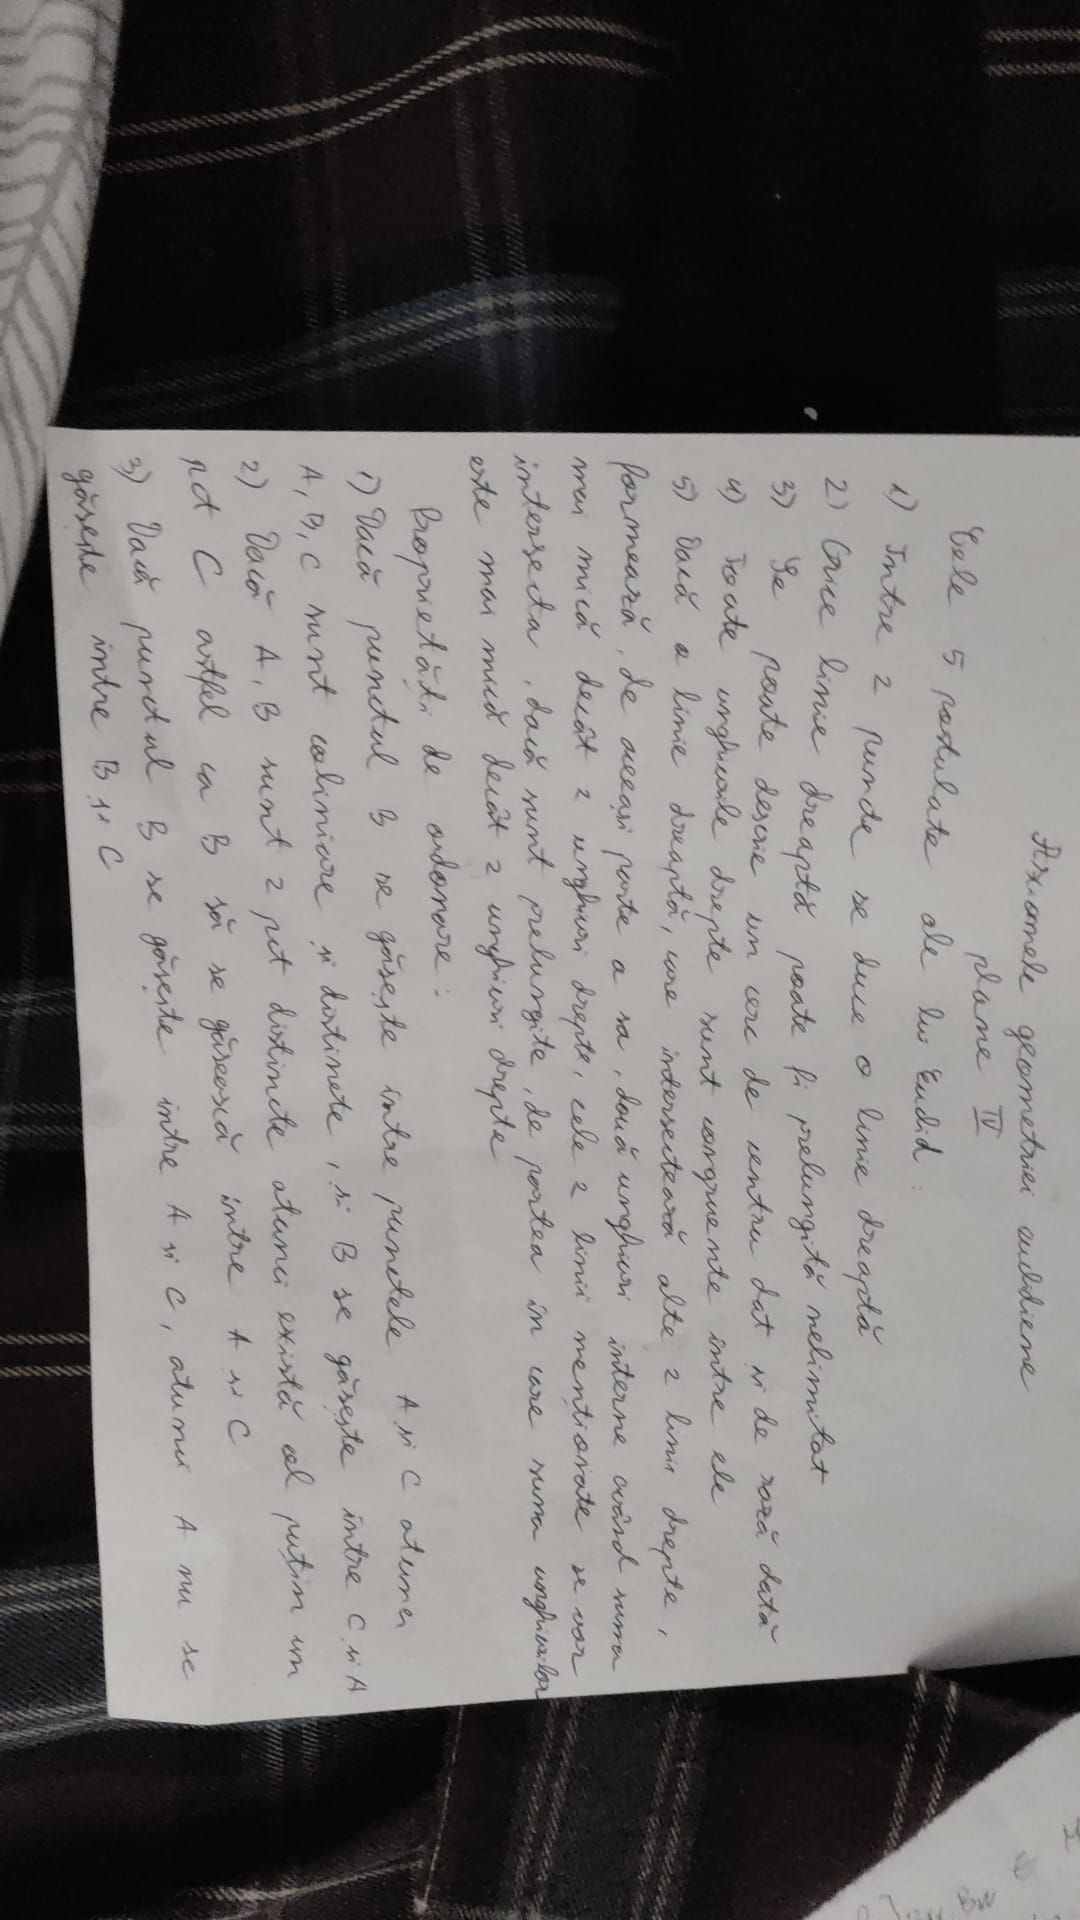 Axiomele geometriei euclidiene
plane IV
Cele 5 postulate ale lui Euclid :
1) Intre 2 puncte se duce o linie dreaptă
2) Orice linie dreaptă poate fi prelungită nelimitat
3) Se poate descrie un cerc de centru dat și de rază dată
4) Toate unghiurile drepte sunt congruente intre ele
5) Dacă o linie dreaptă, care intersectează alte 2 linii drepte,
formează, de aceeași parte a sa, două unghiuri interne având suma
mai mică decât 2 unghiuri drepte, cele 2 linii menționate se vor
intersecta, dacă sunt prelungite, de partea in care suma unghiurilor
este mai mică decât 2 unghiuri drepte
Proprietăți de ordonare :
1) Dacă punctul B se găsește intre punctele A și C atunci
A, B, C sunt coliniare și distincte, și B se găsește intre C și A
2) Dacă A, B sunt 2 pct distincte atunci există cel puțin un
pct C astfel ca B să se găsească intre A și C
3) Dacă punctul B se găsește intre A și C, atunci A nu se
găsește intre B și C